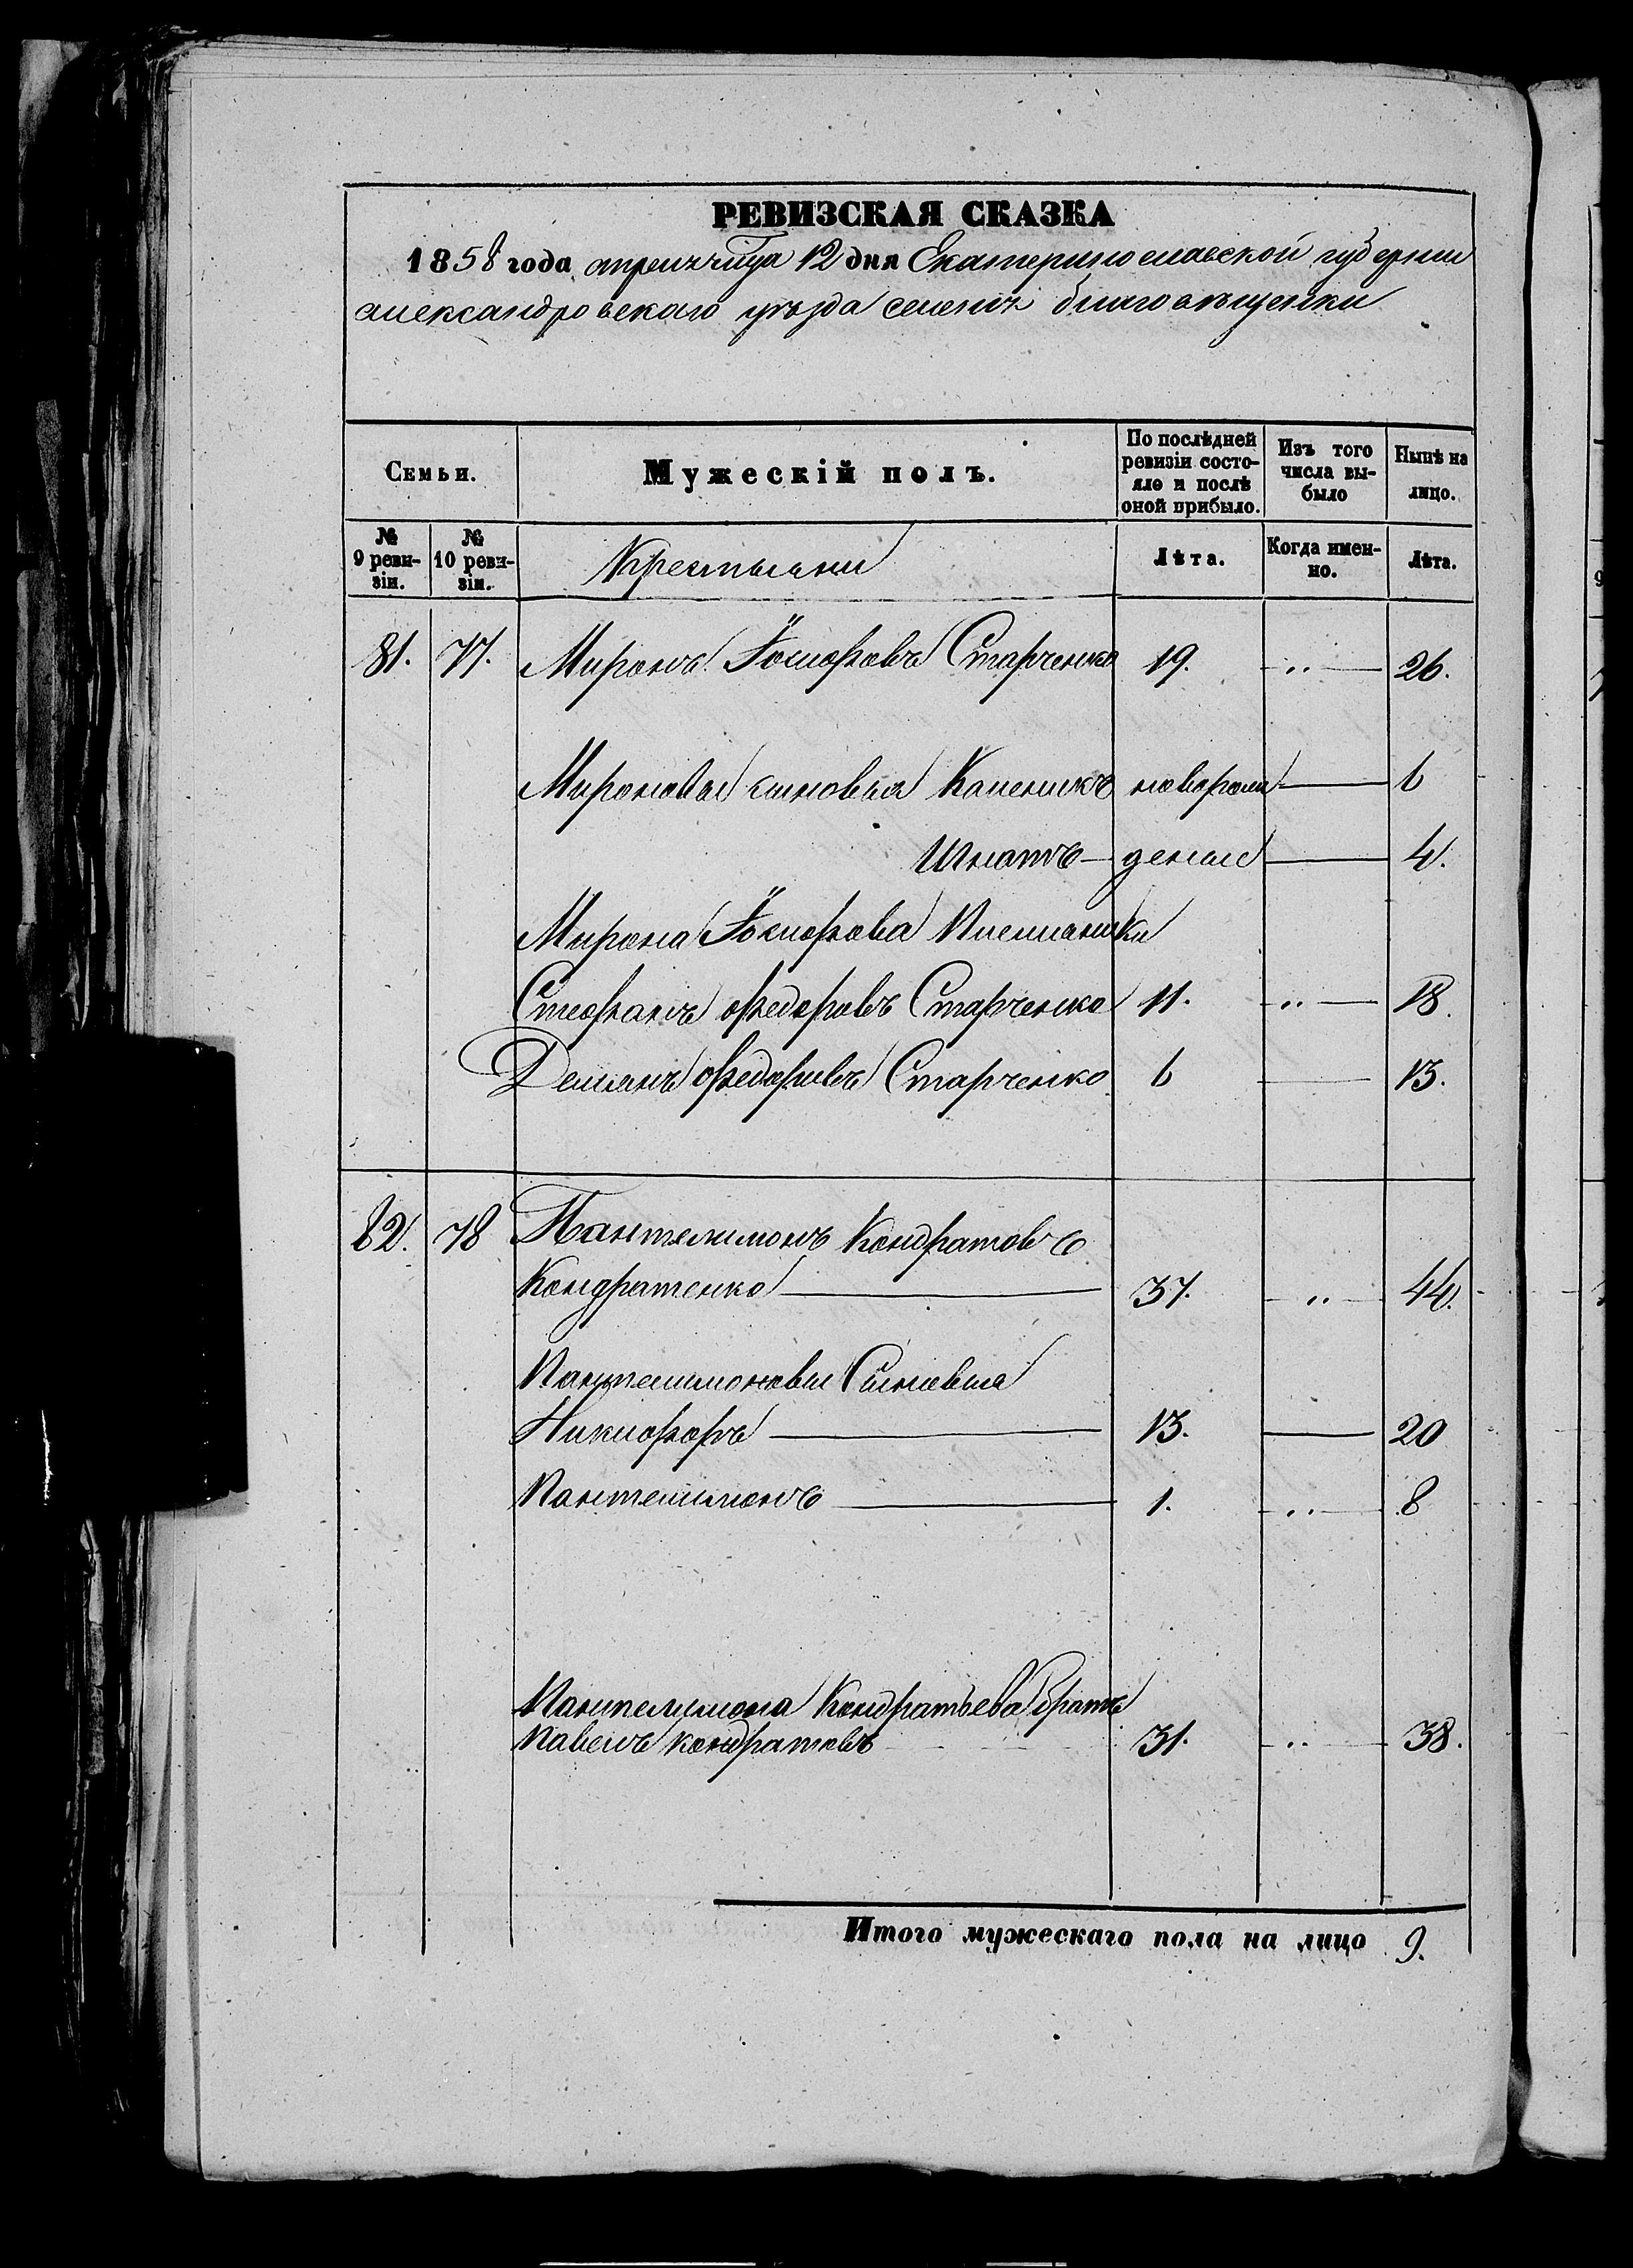 РЕВИЗСКАЯ СКАЗКА
1858 года апреля 12 дня Екатеринославской губернии
александровскаго уѣзда селенія благовѣщенки
Семьи.
Мужескій полъ.
По послѣдней ревизіи состояло и послѣ оной прибыло.
Изъ того числа выбыло
Нынѣ на лицо.
№ 9 ревизіи.
№ 10 ревизіи.
Крестьяни
Лѣта.
Когда именно.
Лѣта.
81. 77. Миронъ Старченко 19. „ 26.
Мироновы сыновья Каленикъ новорож 6
Игнатъ деные 4.
Мирона Племяники
Стефанъ Федоровъ Старченко 11. „ 18.
Демянъ Федоровъ Старченко 6 13.
82. 78 Пантелимонъ Кондратовъ
Кондратенко 37. „ 44.
Пантелимоновы Сыновья
Никифоръ 13. 20
Пантелимонъ 1. „ 8
Пантелимона Кондратьева братъ
Павелъ Кондратовъ 31. „ 38.
Итого мужескаго пола на лицо 9.